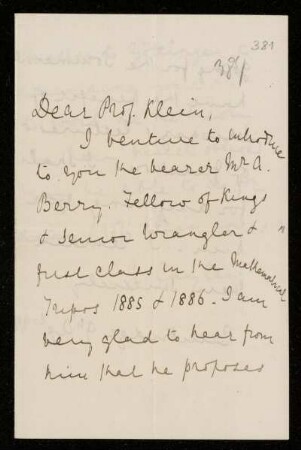 381
381
Dear Prof. Klein,
I venture to introduce
to you the bearer Mr A.
Berry. Fellow of Kings
& Senior Wrangler &
first class in the Mathematical
Tripos 1885 & 1886. I am
very glad to hear from
him that he proposes